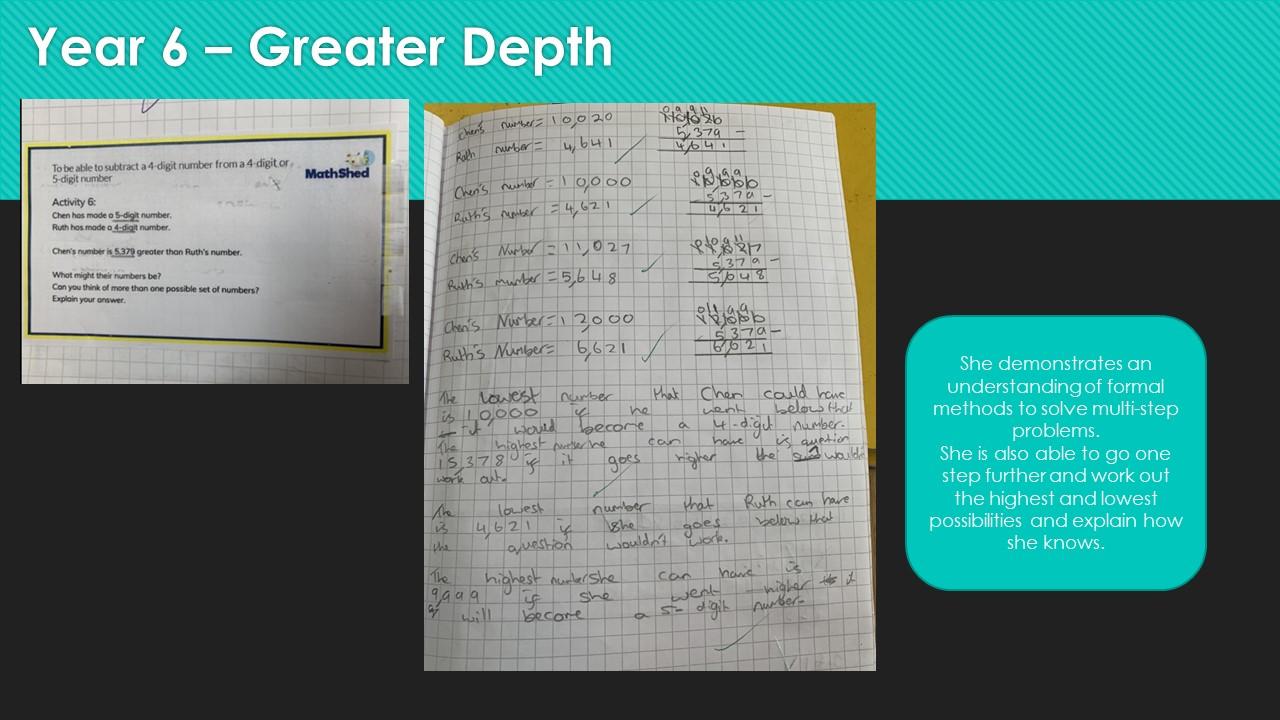 Year 6 – Greater Depth
To be able to subtract a 4-digit number from a 4-digit or
5-digit number
MathShed
Activity 6:
Chen has made a 5-digit number.
Ruth has made a 4-digit number.
Chen's number is 5,379 greater than Ruth's number.
What might their numbers be?
Can you think of more than one possible set of numbers?
Explain your answer.
Chen's number = 10,020
Ruth number = 4,641
5,379 -
4,641
Chen's number = 10,000
Ruth's number = 4,621
5,379 -
4,621
Chen's Number = 11,027
Ruth's number = 5,648
5,379 -
5,648
Chen's Number = 12,000
Ruth's Number = 6,621
5,379 -
6,621
The lowest number that Chen could have
is 10,000 if he went below that
it would become a 4-digit number.
The highest number he can have is
15,378 if it goes higher the wouldn't
work out.
The lowest number that Ruth can have
is 4,621 if she goes below that
the question wouldn't work.
The highest number she can have is
9,999 if she went higher it
will become a 5-digit number.
She demonstrates an
understanding of formal
methods to solve multi-step
problems.
She is also able to go one
step further and work out
the highest and lowest
possibilities and explain how
she knows.